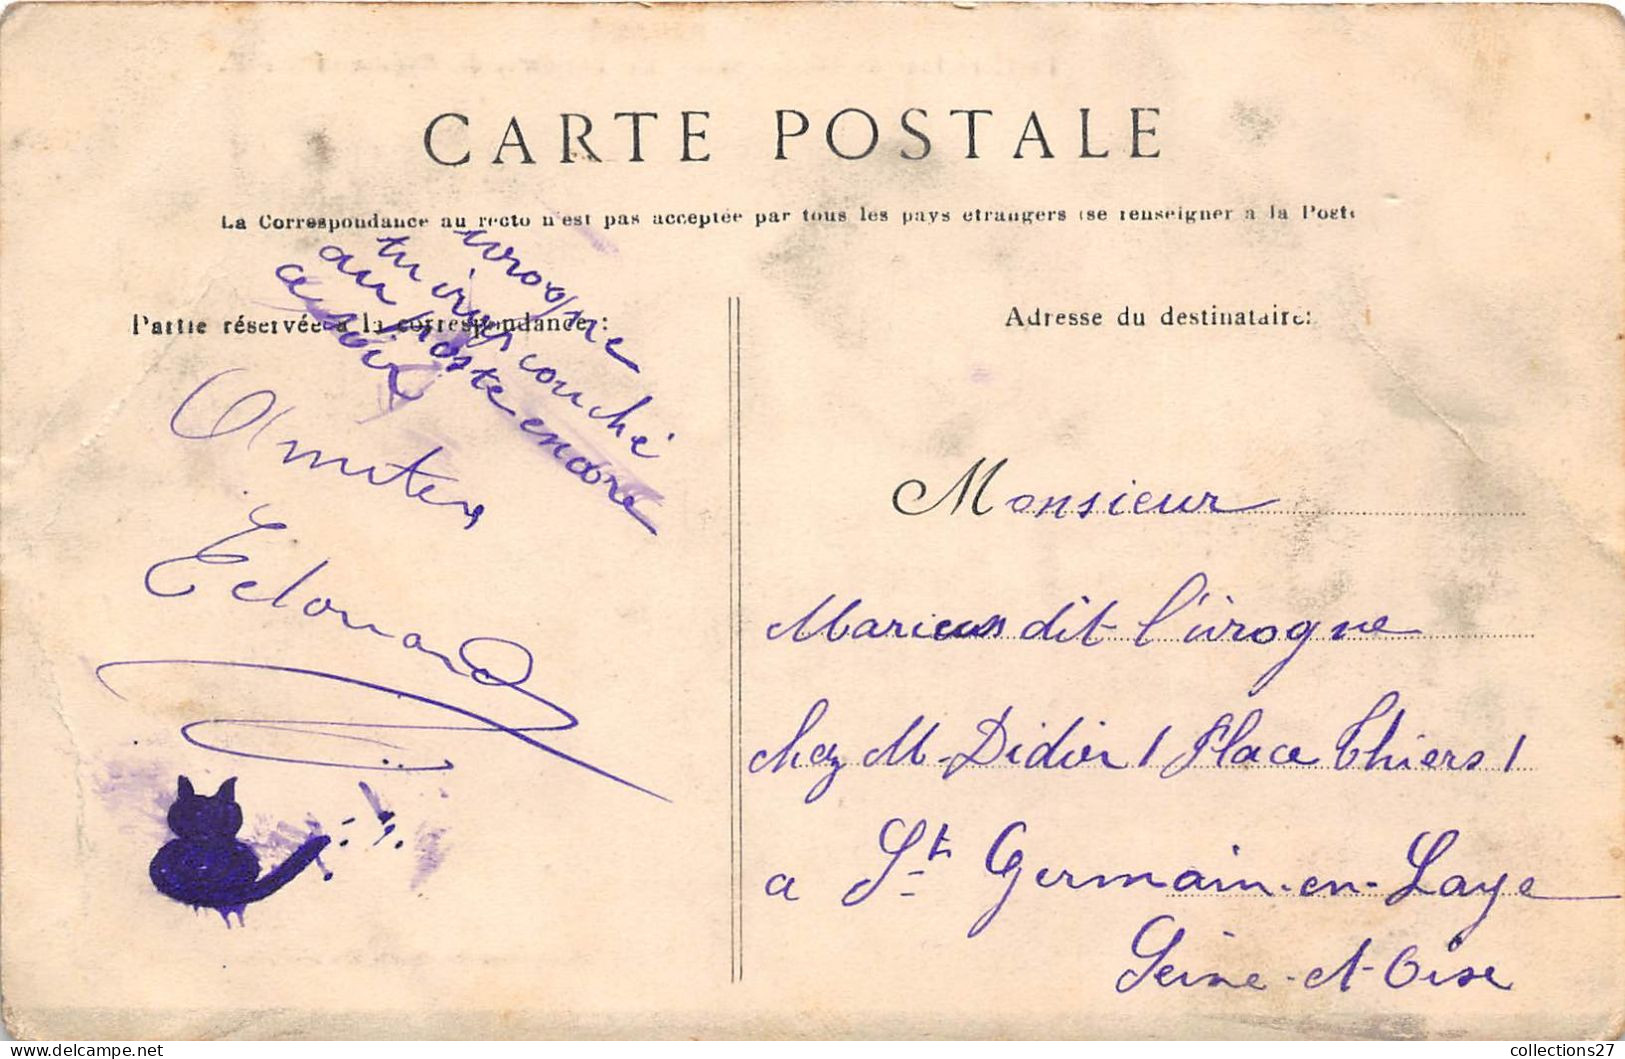 CARTE POSTALE
La Correspondance au recto n'est pas acceptée par tous les pays etrangers (se renseigner a la Poste
Partie réservée à la correspondance:
Adresse du destinataire:
ivrogne
tu iras couché
au poste encore
ce soir
Amities
Edouard
Monsieur
Marius dit l'ivrogne
chez M. Didier 1 Place Thiers 1
a St Germain-en-Laye
Seine-et-Oise
collections27